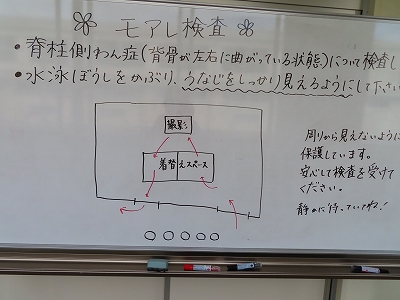 モアレ検査
・脊柱側わん症(背骨が左右に曲がっている状態)について検査し
・水泳ぼうしをかぶり、うなじをしっかり見えるようにして下さい
撮影
着替えスペース
周りから見えないように
保護しています。
安心して検査を受けて
ください。
静かに待っていてね!